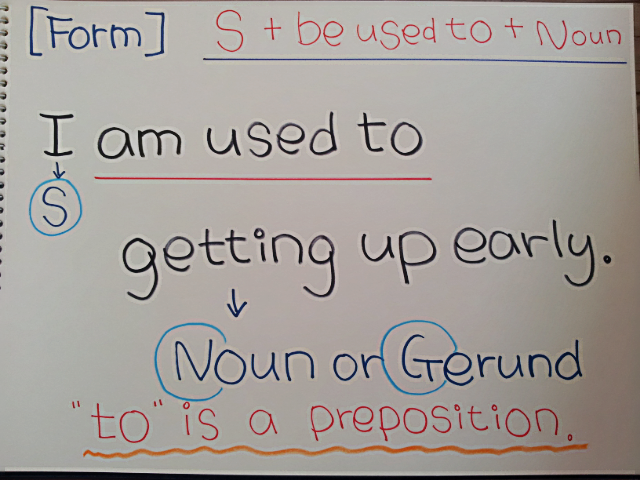 [Form] S + be used to + Noun
I am used to
S
getting up early.
Noun or Gerund
"to" is a preposition.